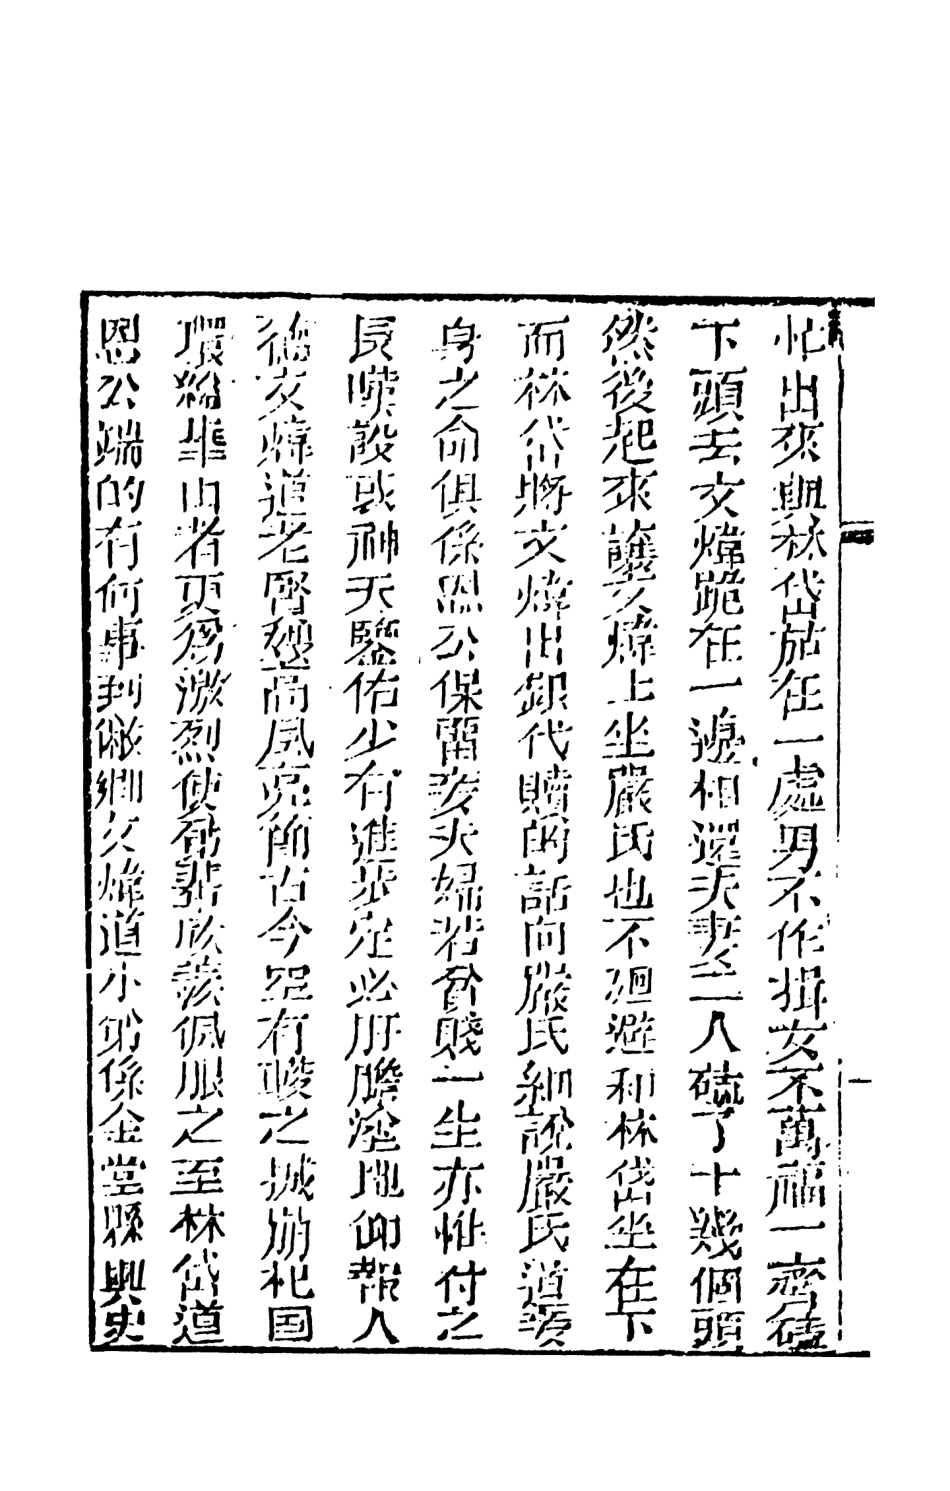 忙出來與林岱站在一處男不作揖女不萬福一齊磕
下頭去文煒跪在一邊相還夫妻二人磕了十幾個頭
然後起來讓文煒上坐嚴氏也不廻避和林岱坐在下
而林岱將文煒出銀代贖的話向嚴氏細說嚴氏道妾
身之命俱係恩公保留妾夫婦若貧賤一生亦惟付之
長嘆設或神天鑒佑少有進步定必肝膽塗地仰報人
德文煒道老賢嫂高風亮節古今罕有較之城崩杞国
環綰華山者更爲激烈使弟輩欣羨佩服之至林岱道
恩公端的有何事到敝鄉文煒道小弟係金堂縣典史